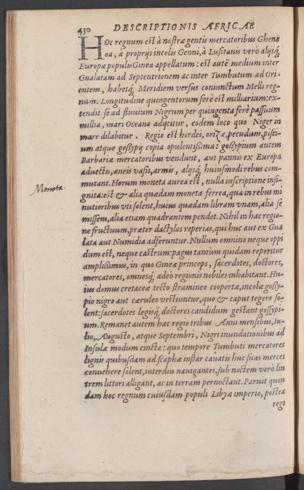 430 DESCRIPTIONIS AFRICAE
Hoc regnum est à nostra gentis mercatoribus Gheno
oa, à proprijs incolis Genni, à Lusitanis verò alijsq́
Europa populis Ginea appellatum: est autē medium inter
Gualatam ad Septentrionem ac inter Tumbutum ad Ori-
entem, habetq́ Meridiem versus coniunctum Melli reg-
num. Longitudine quingentorum ferè est milliarium: ex-
tendit se ad fluuium Nigrum per quingenta ferè passuum
millia, mari Oceano adijcitur, eodem loco quo Niger in
mare dilabitur. Regio est hordei, orizæ, pecudum, pisci-
um atque gossypij copia opulentissima: gossypium autem
Barbariæ mercatoribus vendunt, aut pannis ex Europa
aduectis, aneis vasis, armis, alijsq́ huiusmodi rebus com-
Moneta. mutant. Horum moneta aurea est, nulla inscriptione insi-
gnita: est & alia quædam moneta ferrea, qua in rebus mi
nutioribus vti solent, huius quædam libram vnam, alia se
missem, alia etiam quadrantem pendet. Nihil in hac regio-
ne fructuum, præter dactylos reperias, qui huc aut ex Gua
lata aut Numidia adferuntur. Nullum omnino neque oppi
dum est, neque castrum: pagus tantùm quidam reperitur
amplissimus, in quo Gineæ princeps, sacerdotes, doctores,
mercatores, omnesq́ adeò regionis nobiles inhabitant. Hu-
ius domus cretaceæ tecto stramineo coopertæ, incolæ gossy-
pio nigro aut cæruleo vestiuntur, quo & caput tegere so-
lent: sacerdotes legisq́ doctores candidum gestant gossypi-
um. Remanet autem hæc regio tribus Anni mensibus, Iu-
lio, Augusto, atque Septembri, Nigri inundationibus ad
Insulæ modum cincta: quo tempore Tumbuti mercatores
lignis quibusdam ad scaphæ instar cauatis huc suas merces
conuehere solent, interdiu nauigantes, sub noctem verò lin
trem littori alligant, ac in terram pernoctant. Paruit quon
dam hoc regnum cuiusdam populi Libyæ imperio, postea
regi